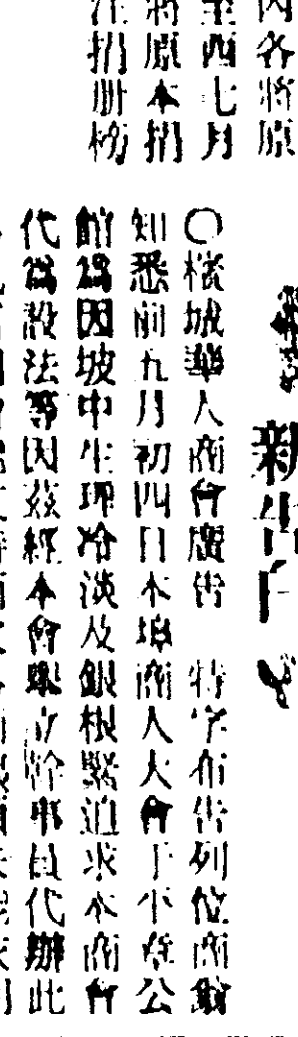 內各將原
至西七月
將原本捐
注捐册榜
新告白
〇檳城華人商會廣告 特字布告列位商翁
知悉前九月初四日本埠商人大會于平章公
館爲因坡中生理冷淡及銀根緊迫求本商會
代爲設法等因茲經本會舉立幹事員代辦此